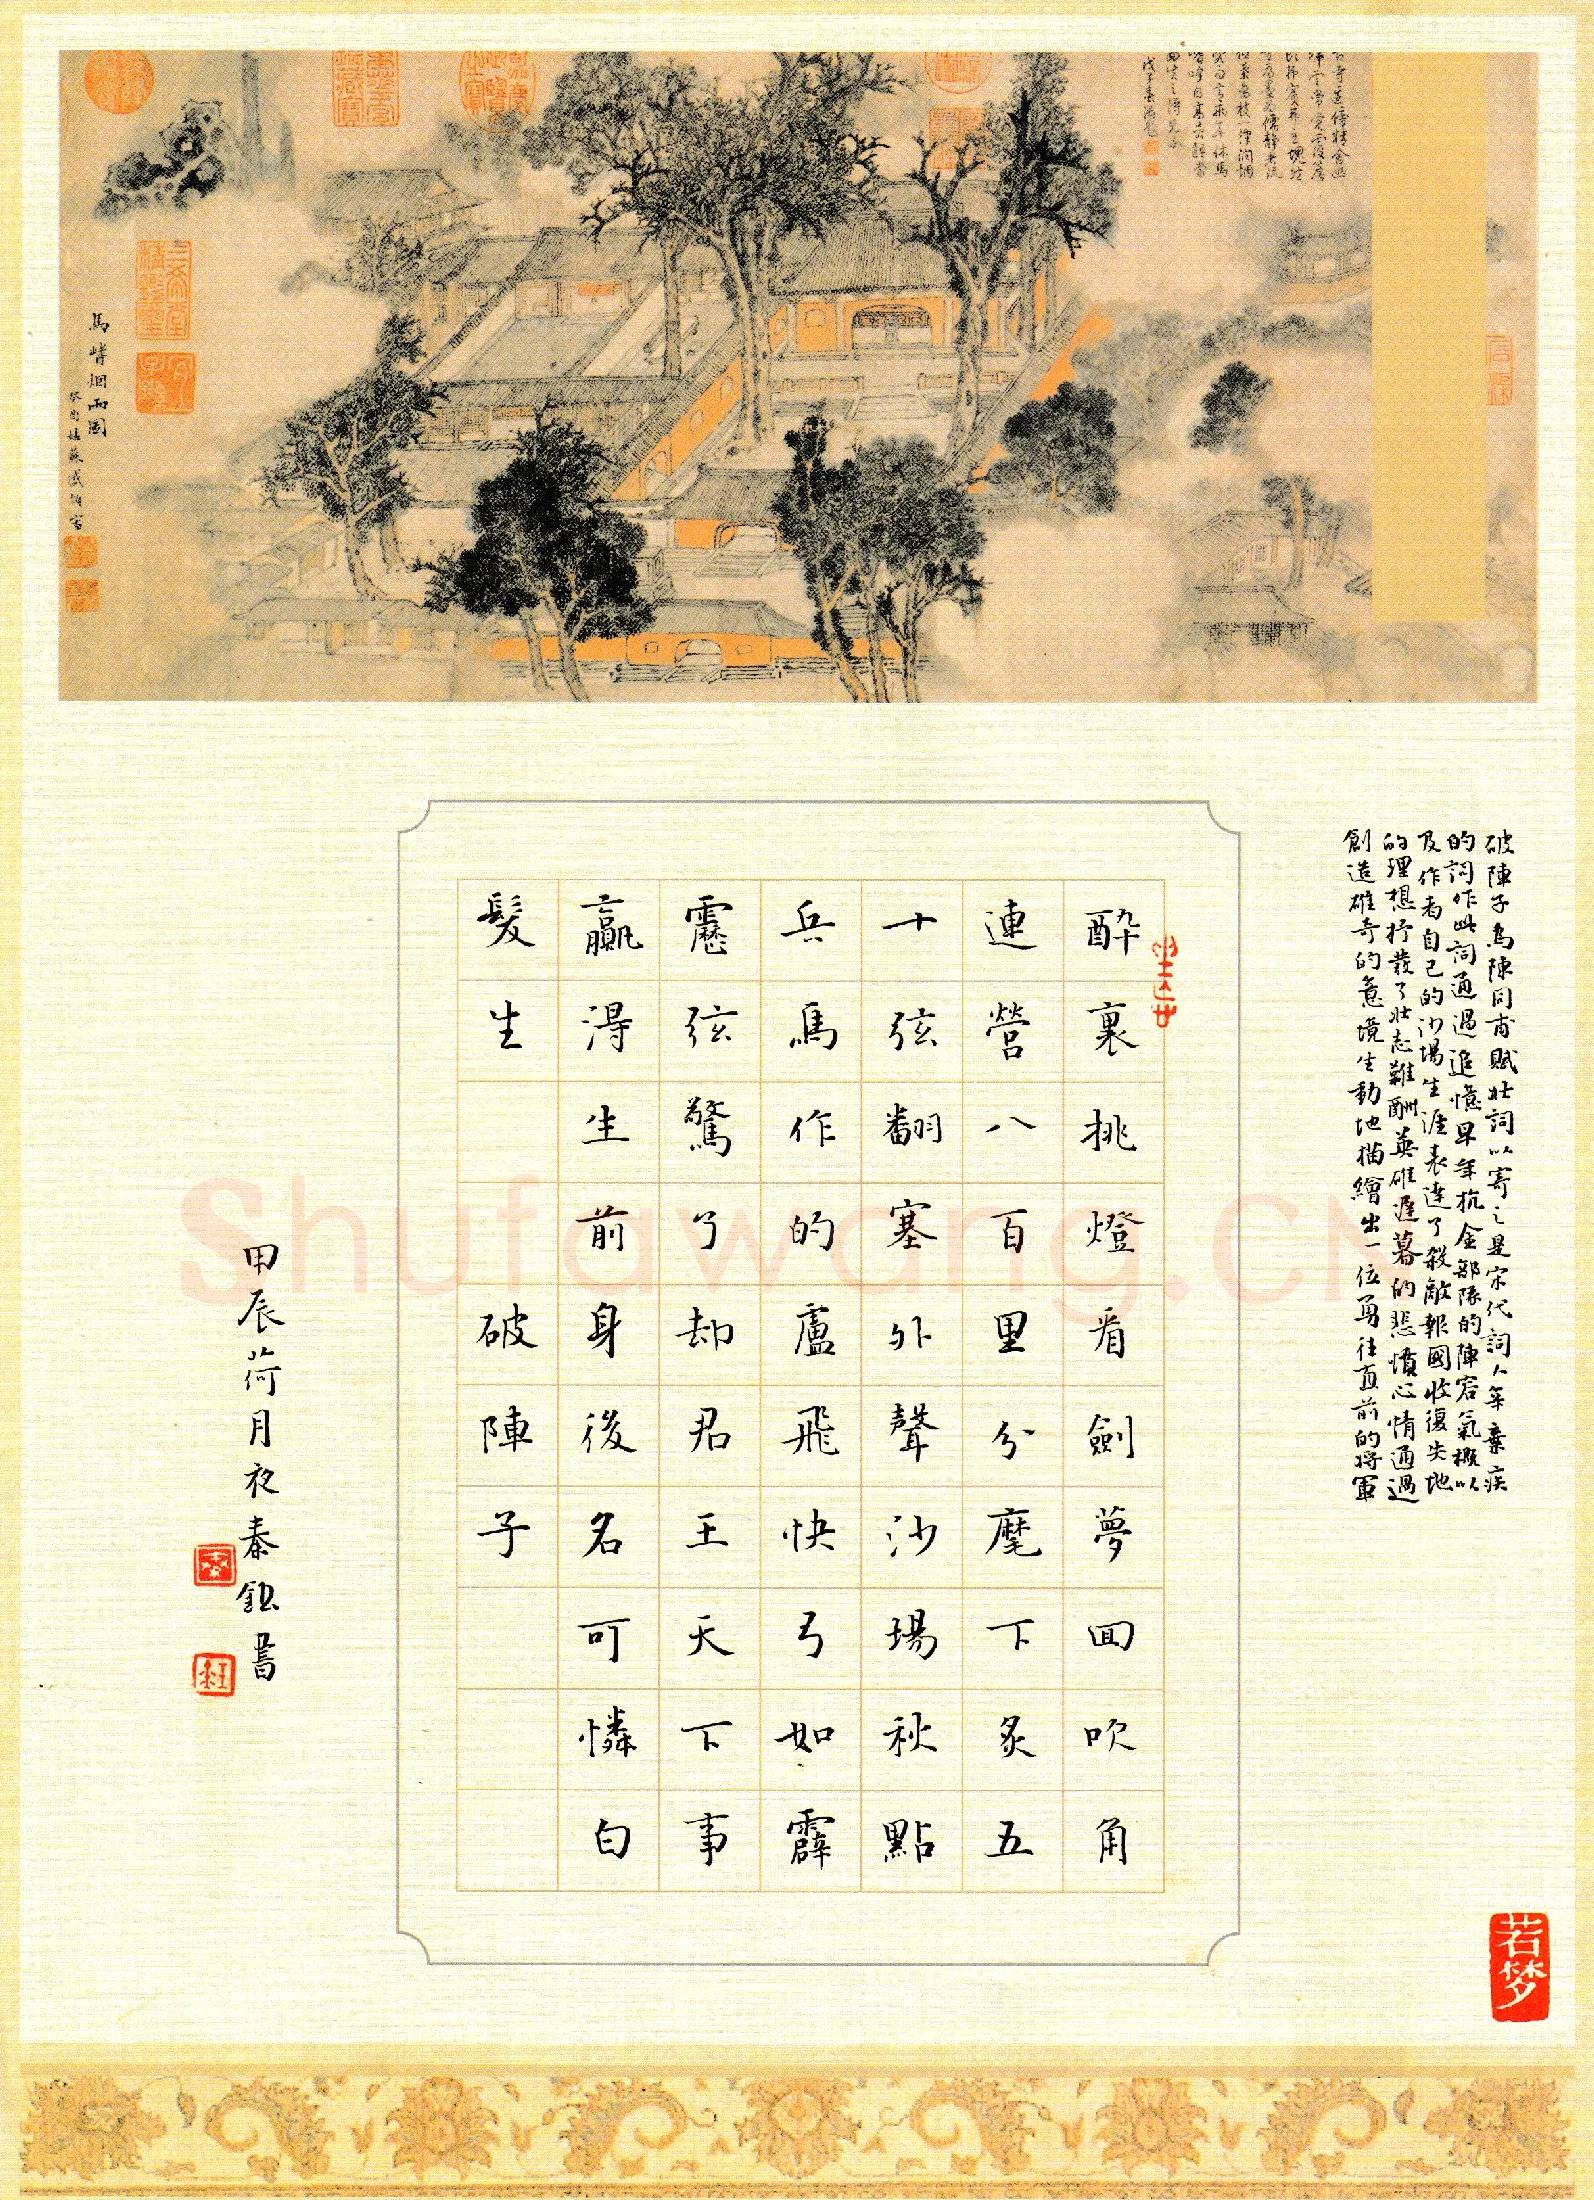 破陣子為陳同甫賦壯詞以寄之是宋代詞人辛棄疾
的詞作此詞通過追憶早年抗金部隊的陣容氣概以
及作者自己的沙場生涯表達了殺敵報國收復失地
的理想抒發了壯志難酬英雄遲暮的悲憤心情通過
創造雄奇的意境生動地描繪出一位勇往直前的將軍
醉裏挑燈看劍夢回吹角
連營八百里分麾下炙五
十弦翻塞外聲沙場秋點
兵馬作的盧飛快弓如霹
靂弦驚了却君王天下事
贏得生前身後名可憐白
髮生
破陣子
甲辰荷月夜秦鈺書
若梦
馬嵴烟雨圖
Shufawang.cn